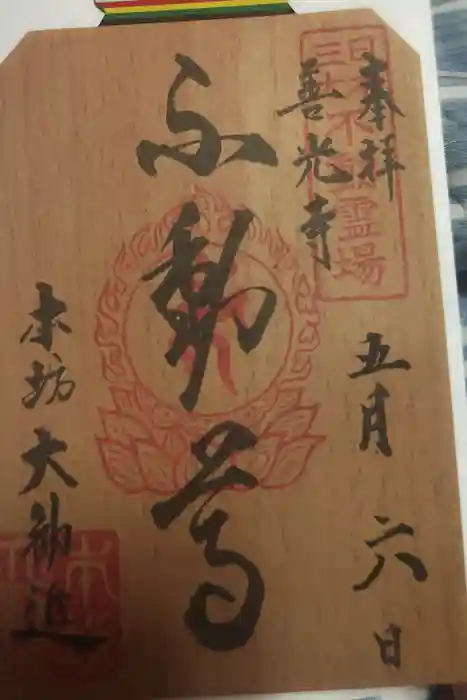 奉拝
善光寺
五月六日
日本三大不動霊場
不動尊
本坊大勧進